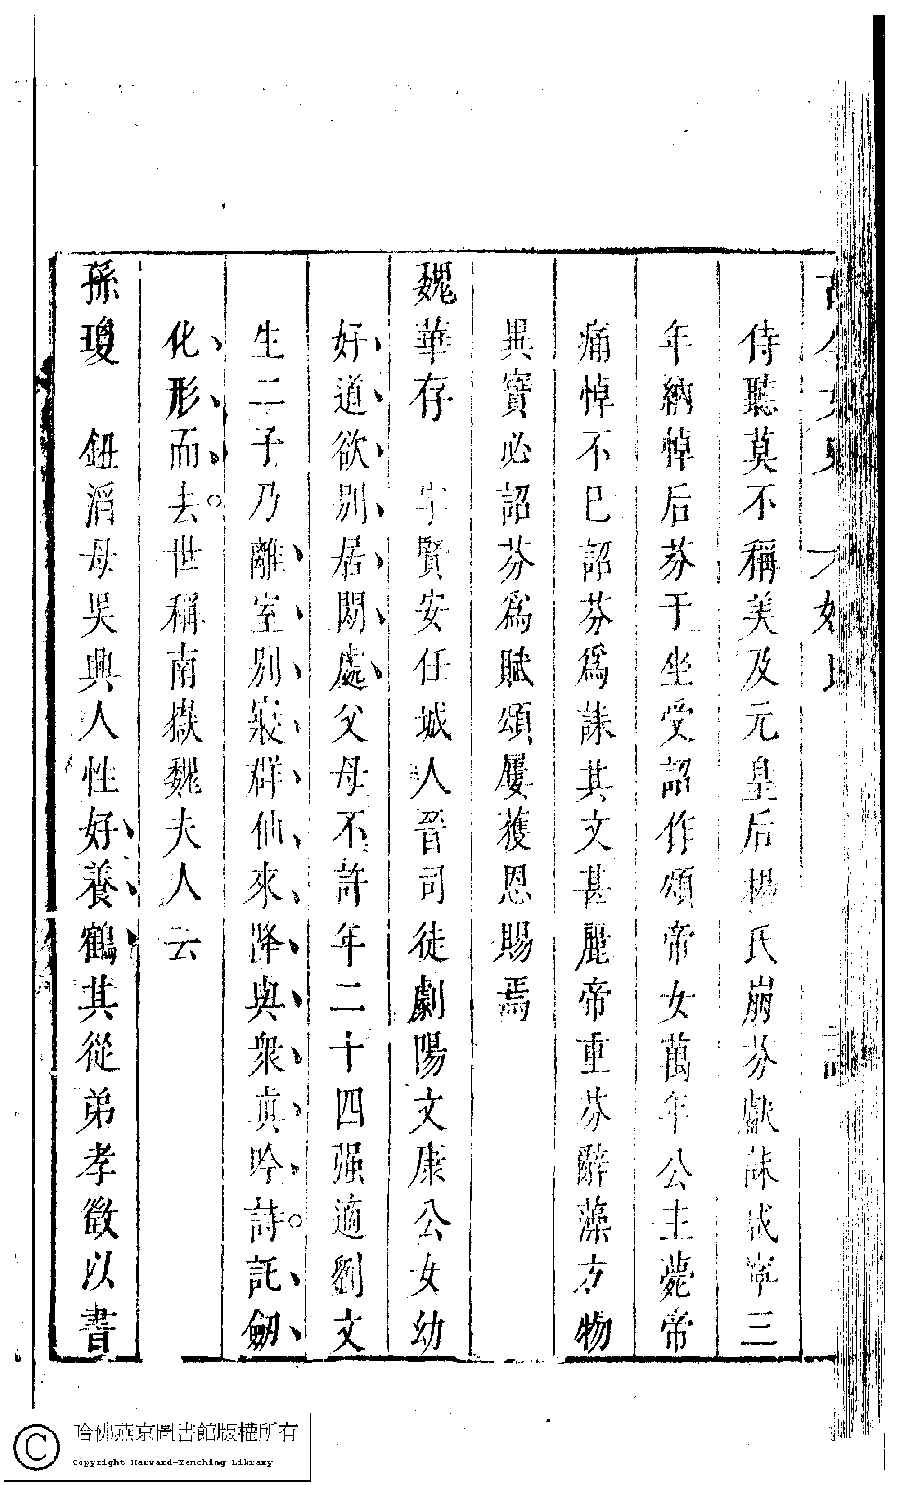 侍聽莫不稱美及元皇后楊氏崩芬獻誄咸寧三
年納悼后芬于坐受詔作頌帝女萬年公主薨帝
痛悼不已詔芬爲誄其文甚麗帝重芬辭藻方物
異寶必詔芬爲賦頌屢獲恩賜焉
魏華存 字賢安任城人晉司徒劇陽文康公女幼
好道欲別居閒處父母不許年二十四强適劉文
生二子乃離室別寢群仙來降與衆真吟詩託劒
化形而去世稱南嶽魏夫人云
孫瓊 鈕滔母吳興人性好養鶴其從弟孝徵以書
哈佛燕京圖書館版權所有
Copyright Harvard-Yenching Library